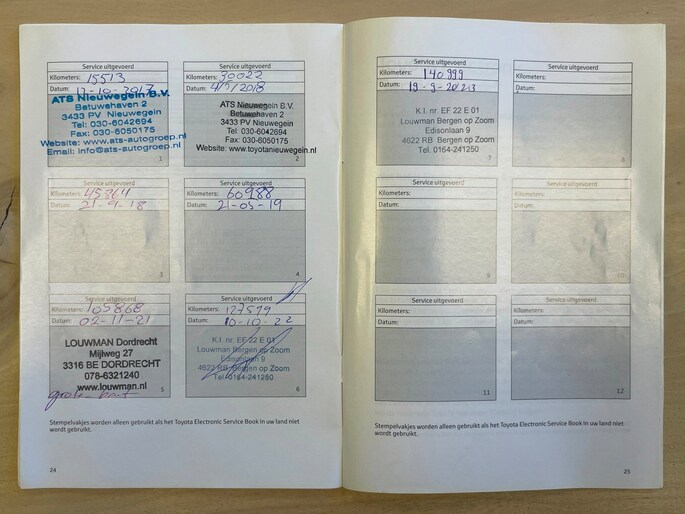 Service uitgevoerd
Kilometers: 15513
Datum: 12-10-2017
ATS Nieuwegein B.V.
Betuwehaven 2
3433 PV Nieuwegein
Tel: 030-6042694
Fax: 030-6050175
Website: www.ats-autogroep.nl
Email: info@ats-autogroep.nl
1
Service uitgevoerd
Kilometers: 30022
Datum: 4/7/2018
ATS Nieuwegein B.V.
Betuwehaven 2
3433 PV Nieuwegein
Tel: 030-6042694
Fax: 030-6050175
Website: www.toyotanieuwegein.nl
2
Service uitgevoerd
Kilometers: 45364
Datum: 21-9-18
3
Service uitgevoerd
Kilometers: 60988
Datum: 21-05-19
4
Service uitgevoerd
Kilometers: 105868
Datum: 02-11-21
LOUWMAN Dordrecht
Mijlweg 27
3316 BE DORDRECHT
078-6321240
www.louwman.nl
5
grote beurt
Service uitgevoerd
Kilometers: 127579
Datum: 10-10-22
K.I. nr. EF 22 E 01
Louwman Bergen op Zoom
Edisonlaan 9
4622 RB Bergen op Zoom
Tel. 0164-241250
6
Stempelvakjes worden alleen gebruikt als het Toyota Electronic Service Book in uw land niet
wordt gebruikt.
24
Service uitgevoerd
Kilometers: 140999
Datum: 19-9-2023
K.I. nr. EF 22 E 01
Louwman Bergen op Zoom
Edisonlaan 9
4622 RB Bergen op Zoom
Tel. 0164-241250
7
Service uitgevoerd
Kilometers:
Datum:
8
Service uitgevoerd
Kilometers:
Datum:
9
Service uitgevoerd
Kilometers:
Datum:
10
Service uitgevoerd
Kilometers:
Datum:
11
Service uitgevoerd
Kilometers:
Datum:
12
Stempelvakjes worden alleen gebruikt als het Toyota Electronic Service Book in uw land niet
wordt gebruikt.
25